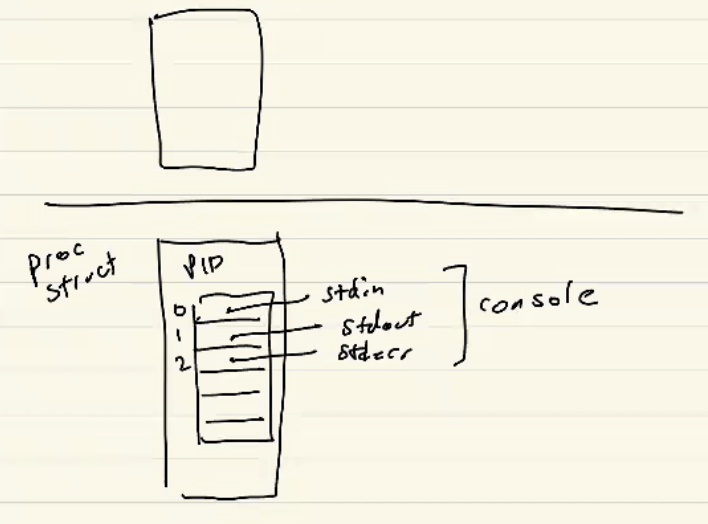 proc
struct
PID
0
stdin
1
stdout
2
stderr
console